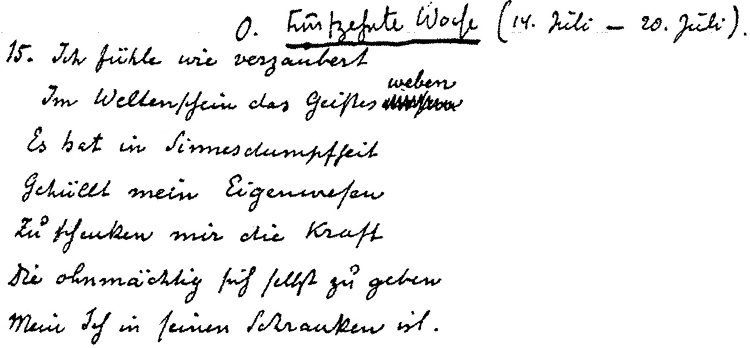 O. Fünfzehnte Woche (14. Juli – 20. Juli).
15. Ich fühle wie verzaubert
weben
Im Weltenschein das Geistes
Es hat in Sinnesdumpfheit
Gehüllt mein Eigenwesen
Zu schenken mir die Kraft
Die ohnmächtig sich selbst zu geben
Mein Ich in seinen Schranken ist.